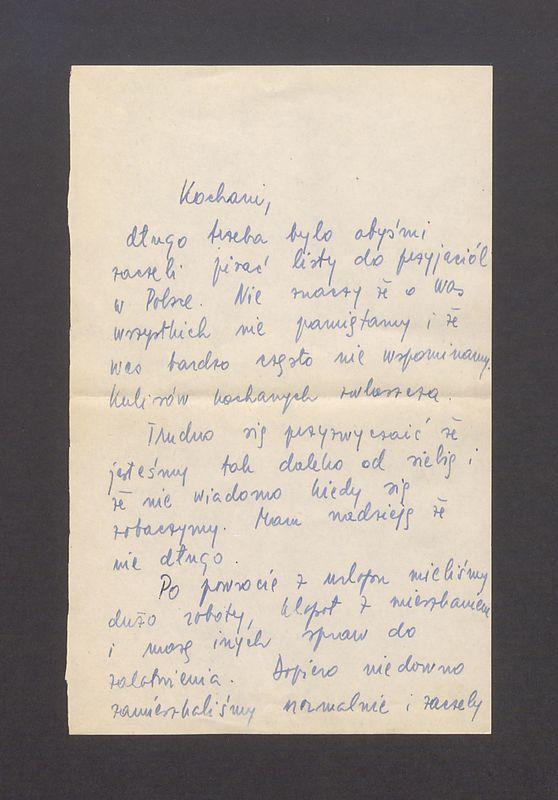 Kochani,
długo trzeba było abyśmi
zaczeli pisać listy do przyjaciół
w Polsce. Nie znaczy że o was
wszystkich nie pamiętamy i że
was bardzo często nie wspominamy.
Kulisów kochanych zwłaszcza.
Trudno się przyzwyczaić że
jesteśmy tak daleko od siebie i
że nie wiadomo kiedy się
zobaczymy. Mam nadzieję że
nie długo.
Po powrocie z urlopu mieliśmy
dużo roboty, kłopot z mieszkaniem
i masę inych spraw do
załatwienia. Dopiero niedawno
zamieszkaliśmy normalnie i zaczeły